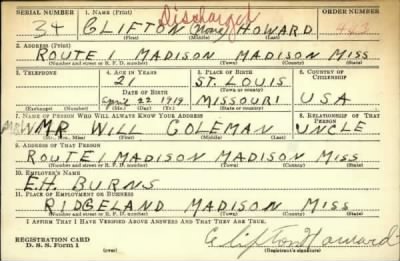 SERIAL NUMBER 1. NAME (Print) ORDER NUMBER
Discharged
34 CLIFTON (None) HOWARD 463
(First) (Middle) (Last)
2. ADDRESS (Print)
ROUTE, MADISON MADISON MISS
(Number and street or R. F. D. number) (Town) (County) (State)
3. TELEPHONE 4. AGE IN YEARS 5. PLACE OF BIRTH 6. COUNTRY OF CITIZENSHIP
21 ST. LOUIS
(Town or county)
DATE OF BIRTH
April 22 1919 MISSOURI USA
(Exchange) (Number) (Mo.) (Day) (Yr.) (State or country)
7. NAME OF PERSON WHO WILL ALWAYS KNOW YOUR ADDRESS 8. RELATIONSHIP OF THAT PERSON
MR WILL COLEMAN UNCLE
(Mr., Mrs., Miss) (First) (Middle) (Last)
9. ADDRESS OF THAT PERSON
ROUTE, MADISON MADISON MISS
(Number and street or R. F. D. number) (Town) (County) (State)
10. EMPLOYER'S NAME
E.H. BURNS
11. PLACE OF EMPLOYMENT OR BUSINESS
RIDGELAND MADISON MISS
(Number and street or R. F. D. number) (Town) (County) (State)
I AFFIRM THAT I HAVE VERIFIED ABOVE ANSWERS AND THAT THEY ARE TRUE.
REGISTRATION CARD
D. S. S. Form 1 (over)
Clifton Howard
(Registrant's signature)